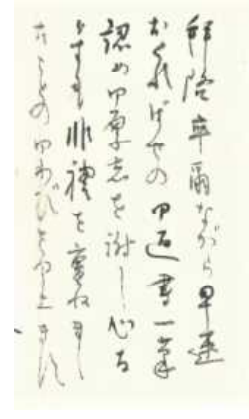 拝啓 率爾ながら早速
おくればせの御返書一筆
認め御厚志を謝し心る
非禮を重ねまし
たことの御わびを申上ます